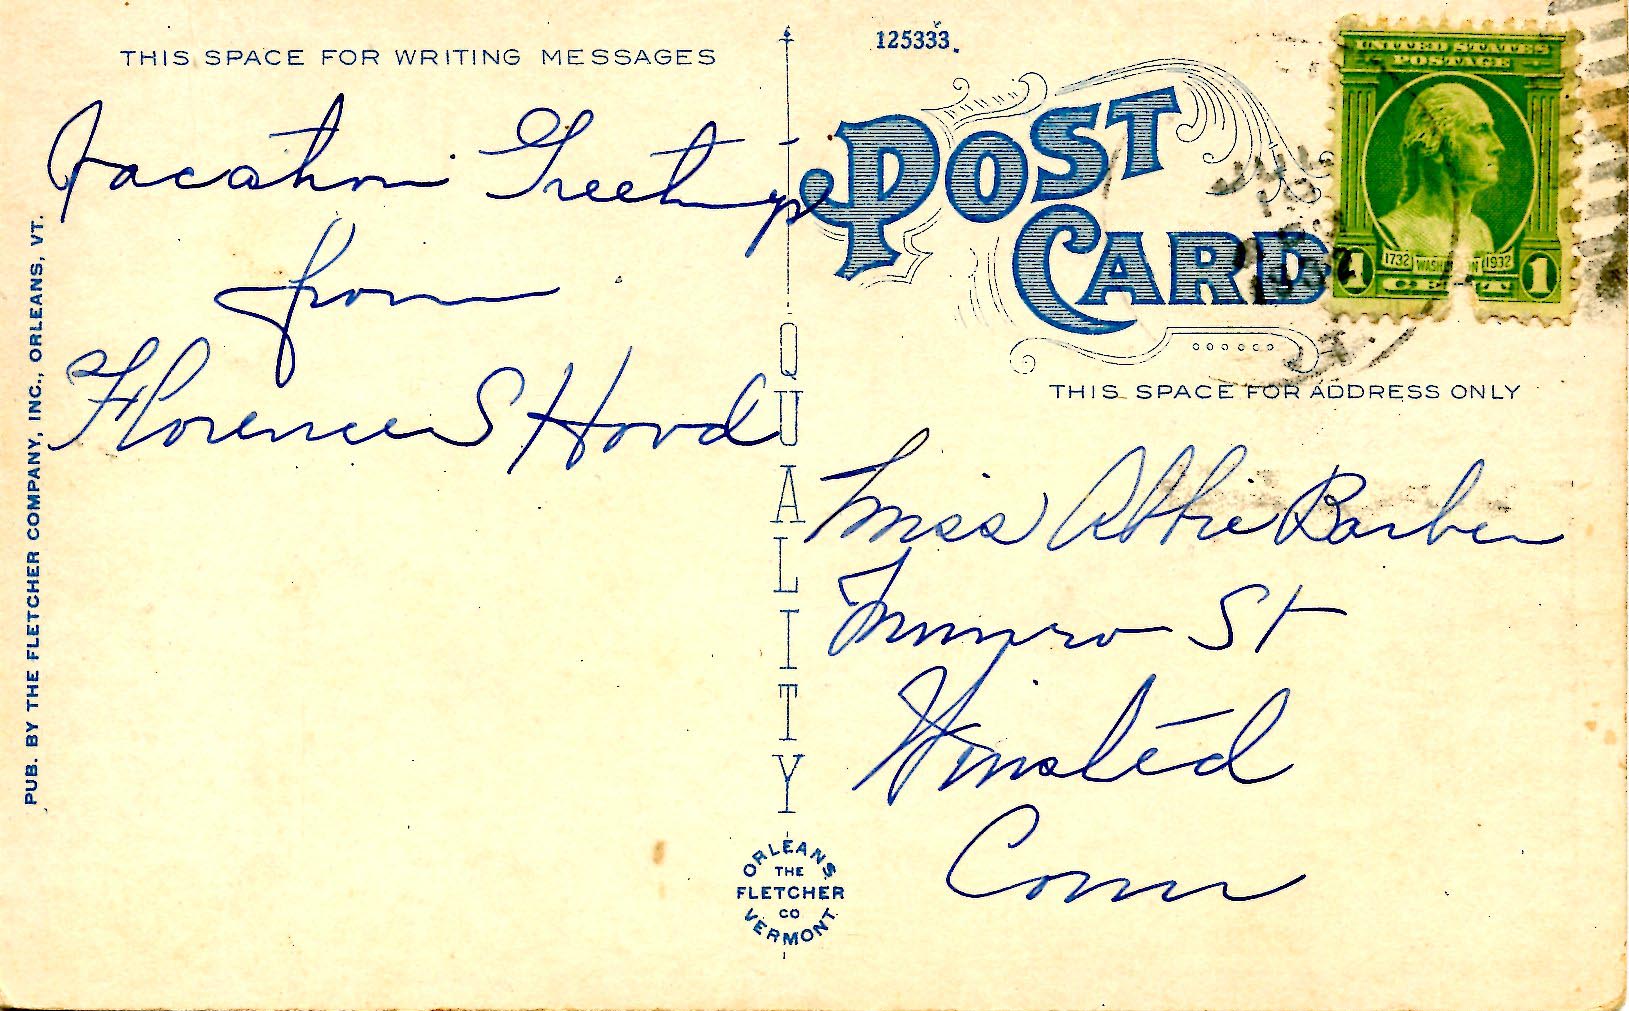 THIS SPACE FOR WRITING MESSAGES
Vacation Greetings
from
Florence S Hood
PUB. BY THE FLETCHER COMPANY, INC., ORLEANS, VT.
QUALITY
ORLEANS
THE
FLETCHER
CO
VERMONT
125333.
POST
CARD
UNITED STATES
POSTAGE
1732 1932
1 CENT 1
JUL
1932
THIS SPACE FOR ADDRESS ONLY
Miss Abbie Barber
Munro St
Winsted
Conn